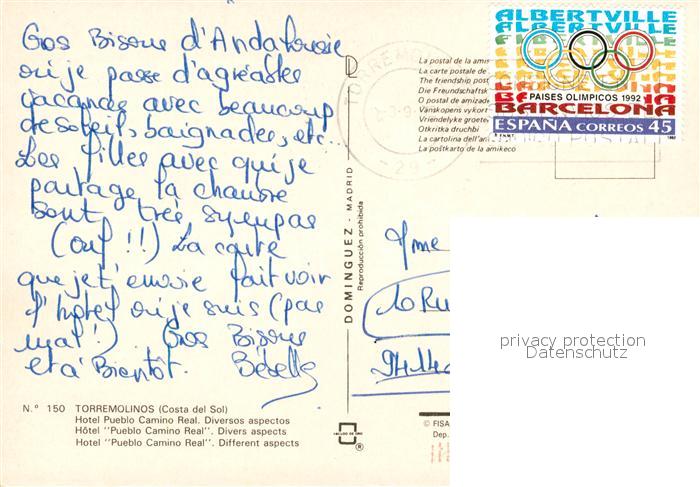 Gros Bisous d'Andalousie
où je passe d'agréables
vacances avec beaucoup
de soleil, baignades, etc...
Les filles avec qui je
partage la chambre
sont très sympas
(ouf !!) La carte
que je t'envoie fait voir
l'hôtel où je suis (pas
mal !) Gros Bisous
et à Bientôt.
N.° 150 TORREMOLINOS (Costa del Sol)
Hotel Pueblo Camino Real. Diversos aspectos
Hôtel "Pueblo Camino Real". Divers aspects
Hotel "Pueblo Camino Real". Different aspects
DOMINGUEZ - MADRID
Reproducción prohibida
La postal de la amis
La carte postale de
The friendship pos
Die Freundschaftsk
O postal de amizade
Vanskopens vykort
Vriendelyke groeten
Otkritka druchbi
La cartolina dell'am
La poŝtkarto de la amikeco
ALBERTVILLE
PAISES OLIMPICOS 1992
BARCELONA
ESPAÑA CORREOS 45
Mme
10 Ru
© FISA
Dep.
privacy protection
Datenschutz